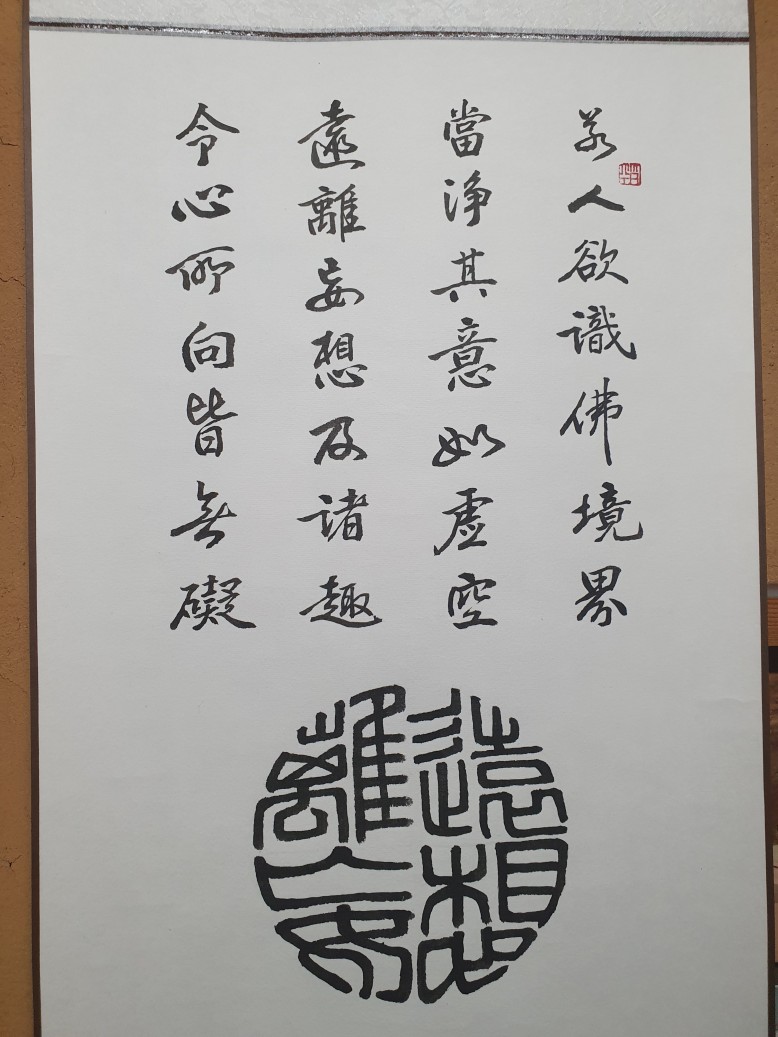 若人欲識佛境界
當淨其意如虛空
遠離妄想及諸趣
令心所向皆無礙
遠離
想妄